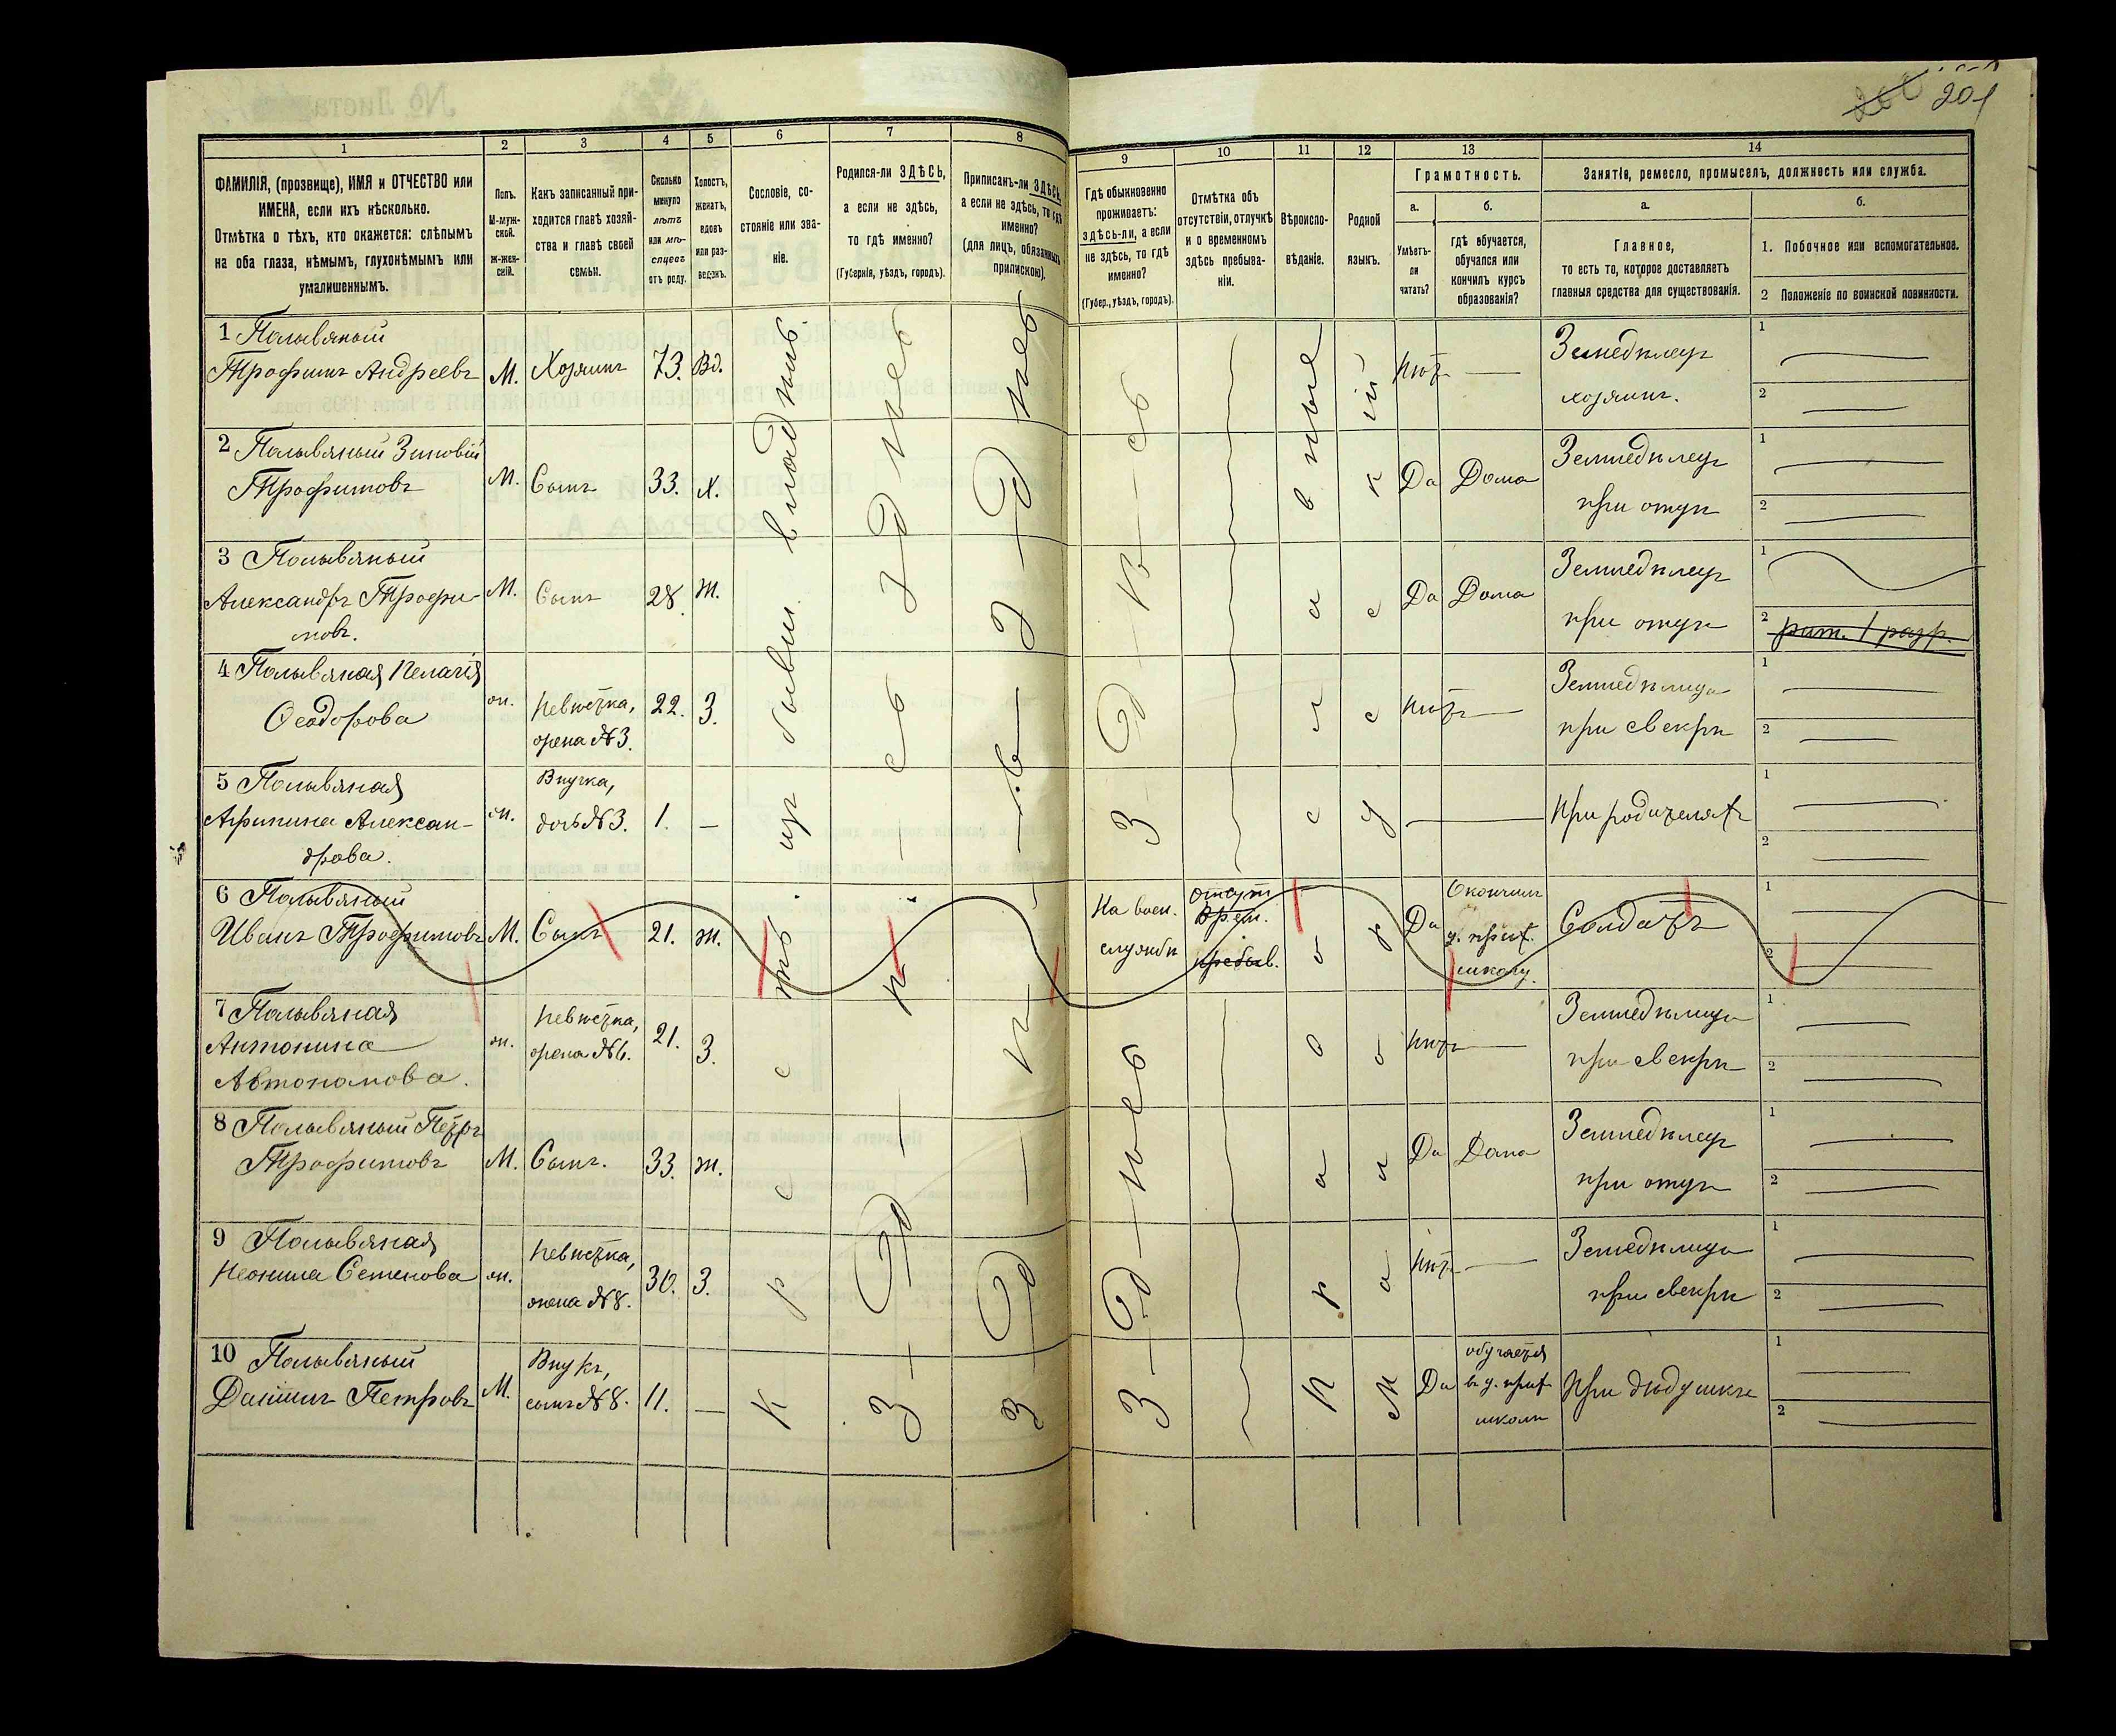 201
1 2 3 4 5 6 7 8 9 10 11 12 13 14
ФАМИЛІЯ, (прозвище), ИМЯ и ОТЧЕСТВО или
ИМЕНА, если ихъ нѣсколько.
Отмѣтка о тѣхъ, кто окажется: слѣпымъ
на оба глаза, нѣмымъ, глухонѣмымъ или
умалишеннымъ.
Полъ.
М-муж-
ской.
ж-жен-
скій.
Какъ записанный при-
ходится главѣ хозяй-
ства и главѣ своей
семьи.
Сколько
минуло
лѣтъ
или мѣ-
сяцевъ
отъ роду.
Холостъ,
женатъ,
вдовъ
или раз-
веденъ.
Сословіе, со-
стояніе или зва-
ніе.
Родился-ли ЗДѢСЬ,
а если не здѣсь,
то гдѣ именно?
(Губернія, уѣздъ, городъ).
Приписанъ-ли ЗДѢСЬ,
а если не здѣсь, то гдѣ
именно?
(для лицъ, обязанныхъ
припискою).
Гдѣ обыкновенно
проживаетъ:
здѣсь-ли, а если
не здѣсь, то гдѣ
именно?
(Губер., уѣздъ, городъ).
Отмѣтка объ
отсутствіи, отлучкѣ
и о временномъ
здѣсь пребыва-
ніи.
Вѣроиспо-
вѣданіе.
Родной
языкъ.
Грамотность.
а.
Умѣетъ-
ли
читать?
б.
гдѣ обучается,
обучался или
кончилъ курсъ
образованія?
Занятіе, ремесло, промыселъ, должность или служба.
а.
Главное,
то есть то, которое доставляетъ
главныя средства для существованія.
б.
1. Побочное или вспомогательное.
2 Положеніе по воинской повинности.
1 Полывяный
Трофимъ Андреевъ М. Хозяинъ 73. Вд. нѣтъ — Земледѣлецъ
хозяинъ.
1
2
2 Полывяный Зиновій
Трофимовъ М. Сынъ 33. х. Да Дома Земледѣлецъ
при отцѣ
1
2
3 Полывяный
Александръ Трофи-
мовъ. М. Сынъ 28. ж. Да Дома Земледѣлецъ
при отцѣ
1
2 рат. 1 разр.
4 Полывяная Пелагія
Ѳеодорова ж. Невѣстка,
жена №3. 22. З. нѣтъ — Земледѣлица
при свекрѣ
1
2
5 Полывяная
Агрипина Алексан-
дрова. ж. Внучка,
дочь №3. 1. — — При родителяхъ
1
2
6 Полывяный
Иванъ Трофимовъ М. Сынъ 21. ж. На воен.
службѣ отсут.
Врем.
пребыв. Да Окончилъ
ц. прих.
школу. Солдатъ
1
2
7 Полывяная
Антонина
Автономова. ж. Невѣстка,
жена №6. 21. З. нѣтъ — Земледѣлица
при свекрѣ
1
2
8 Полывяный Петръ
Трофимовъ М. Сынъ. 33. ж. Да Дома Земледѣлецъ
при отцѣ
1
2
9 Полывяная
Неонила Семенова ж. Невѣстка,
жена №8. 30. З. нѣтъ — Земледѣлица
при свекрѣ
1
2
10 Полывяный
Даніилъ Петровъ М. Внукъ,
сынъ №8. 11. — Да обучается
въ ц. прих.
школѣ При дѣдушкѣ
1
2
Крестьянинъ
изъ бывш. владѣль
Здѣсь
Здѣсь
Здѣсь
Православные
Малорусскій